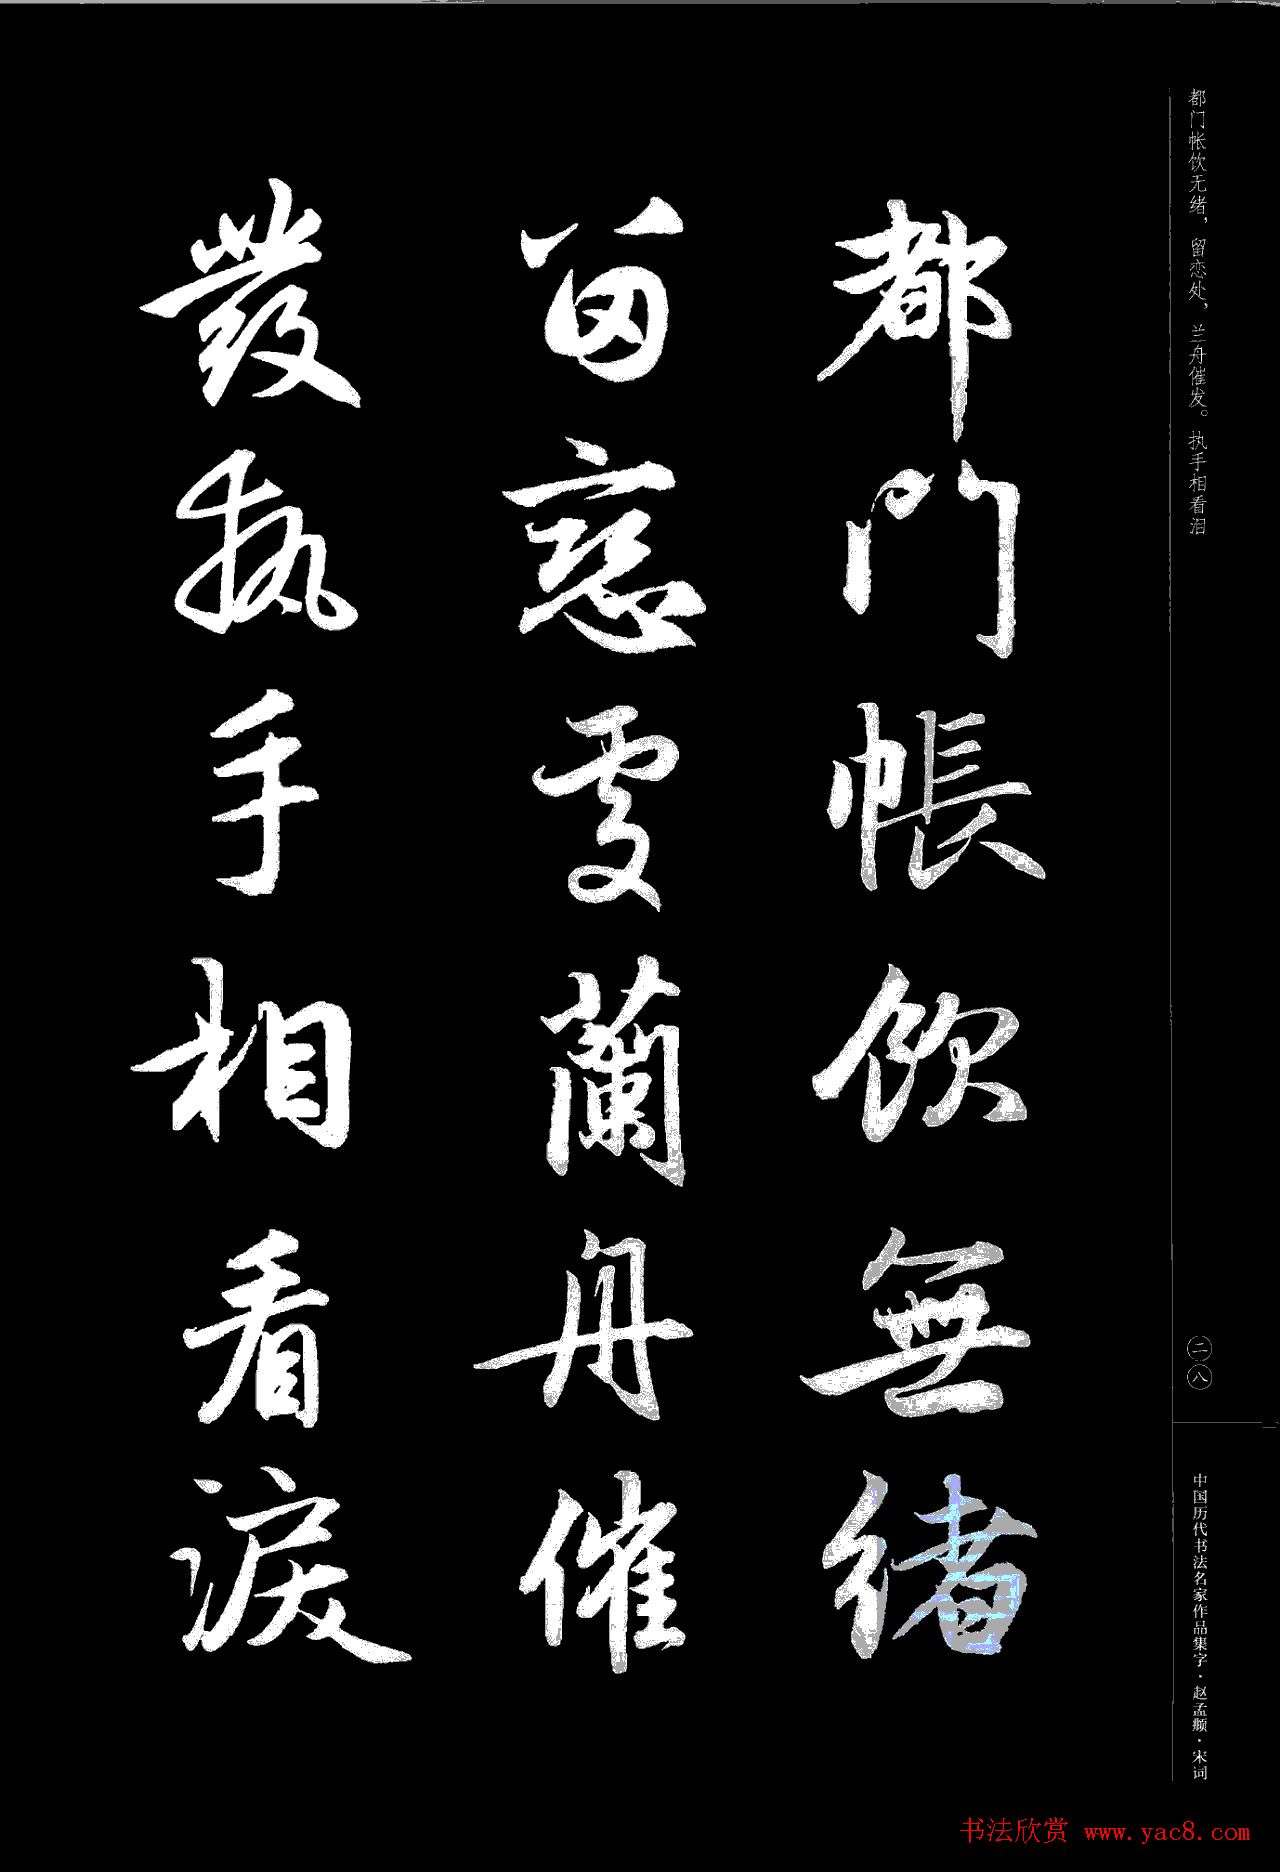 都门帐饮无绪，留恋处，兰舟催发。执手相看泪
都門帳飲無緒
留戀處蘭舟催
發執手相看淚
二八
中国历代书法名家作品集字·赵孟頫·宋词
书法欣赏 www.yac8.com